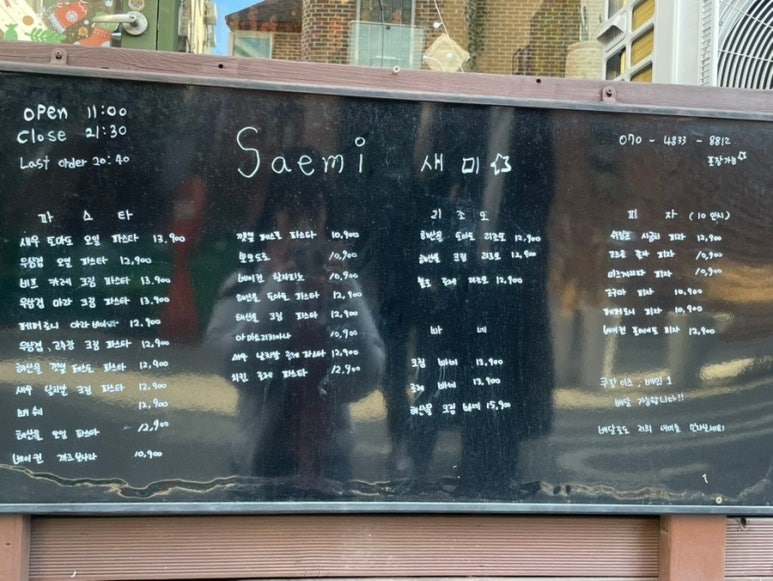 open 11:00
Close 21:30
Last order 20:40
Saemi 새미
070 - 4833 - 8812
포장가능
파스타
새우 토마토 오일 파스타 13,900
우삼겹 오일 파스타 12,900
비프 카레 크림 파스타 13,900
우삼겹 마라 크림 파스타 13,900
페퍼로니 12,900
우삼겹, 고추장 크림 파스타 12,900
해산물 페스토 파스타 12,900
새우 날치알 크림 파스타 12,900
12,900
해산물 오일 파스타 12,900
베이컨 까르보나라 10,900
페스토 파스타 10,900
뽀모도로 10,900
베이컨 할라피뇨 10,900
해산물 토마토 파스타 12,900
해산물 크림 12,900
아마트리치아나 10,900
새우 날치알 로제 파스타 12,900
치킨 로제 파스타 12,900
리조또
해산물 토마토 리조또 12,900
해산물 크림 리조또 12,900
로제 리조또 12,900
빠네
크림 빠네 13,900
로제 빠네 13,900
해산물 크림 빠네 15,900
피자 (10인치)
시금치 피자 12,900
피자 10,900
마르게리타 피자 10,900
고구마 피자 10,900
페퍼로니 피자 10,900
베이컨 포테이토 피자 12,900
쿠팡이츠, 배민 1
배달 가능합니다!!